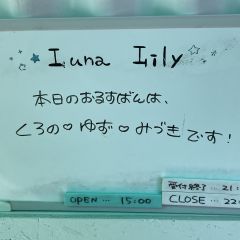 Luna Lily
本日のおるすばんは、
くろの♡ゆず♡みづきです!
受付終了…21:
OPEN … 15:00
CLOSE … 22: